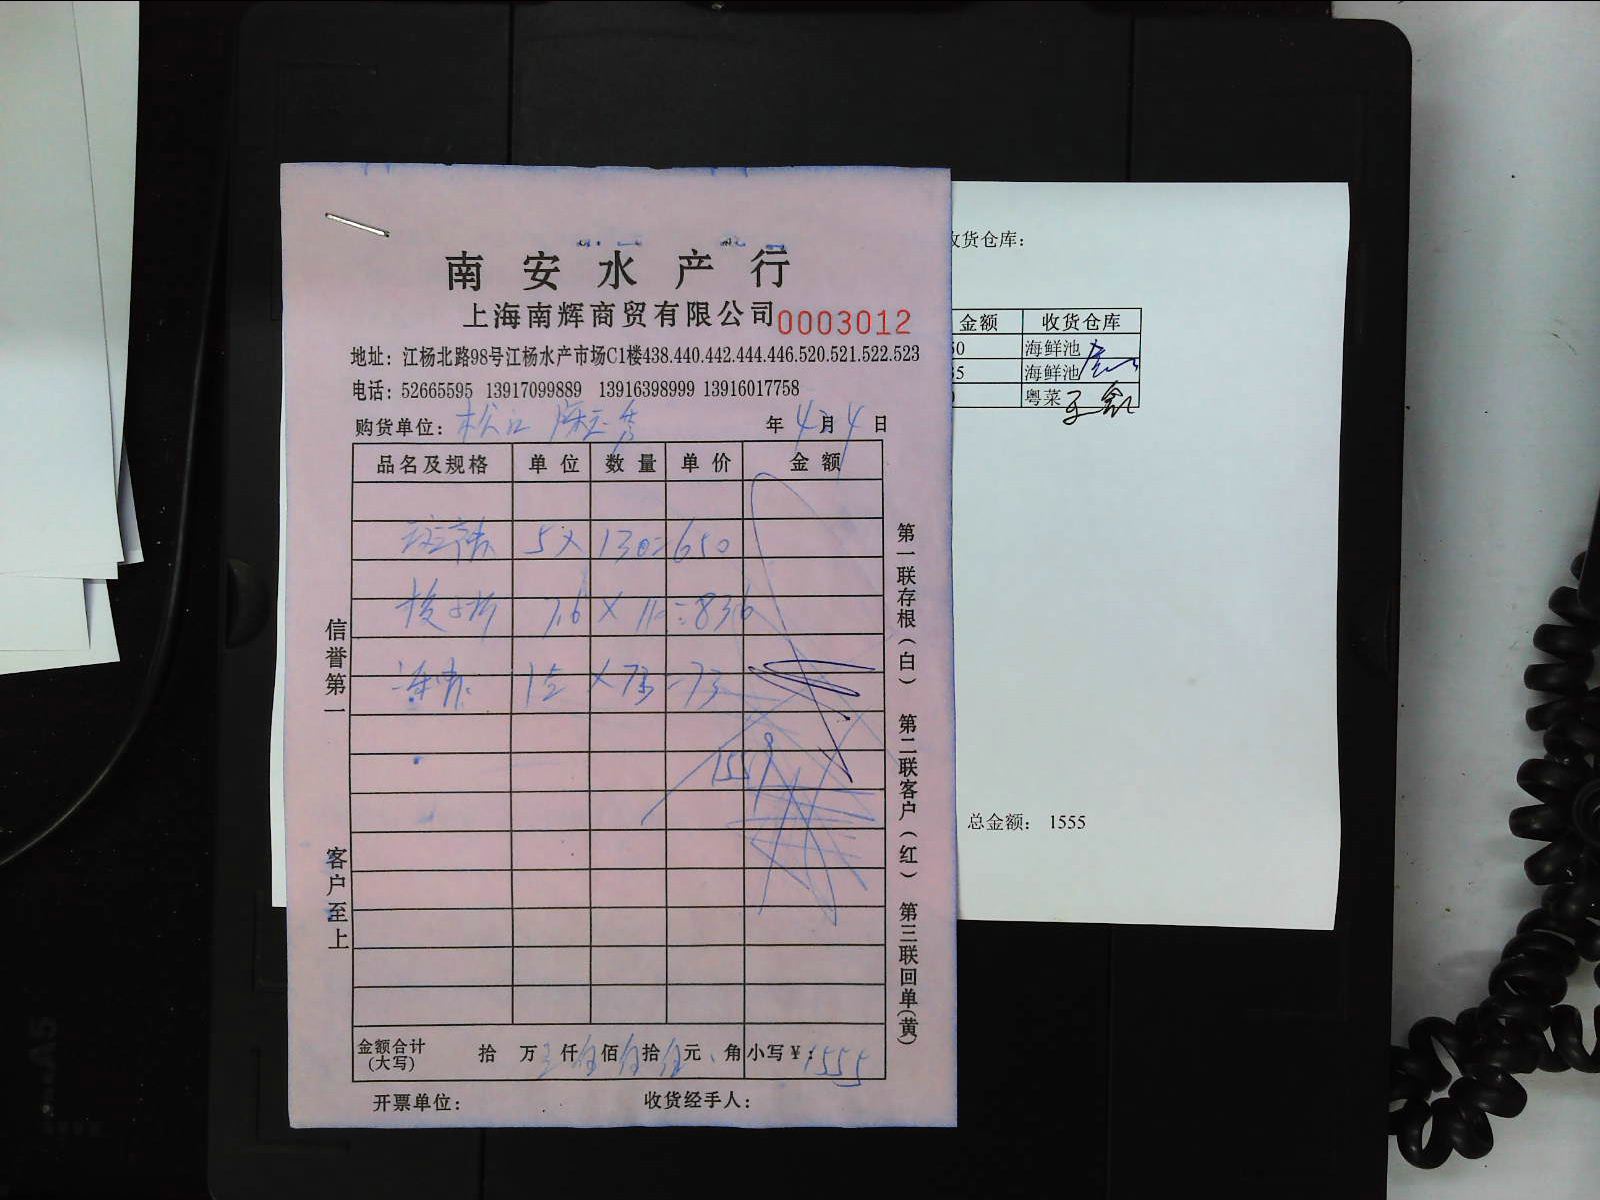 南安水产行
上海南辉商贸有限公司 0003012
地址：江杨北路98号江杨水产市场C1楼438.440.442.444.446.520.521.522.523
电话：52665595 13917099889 13916398999 13916017758
购货单位：松江 年4月4日
品名及规格 单位 数量 单价 金额
5 X 130=650
7.6 X 110=836
1 X 73=73
金额合计(大写) 拾 万 仟 佰 拾 元 角 小写￥：1555
开票单位： 收货经手人：
信誉第一
客户至上
第一联存根(白) 第二联客户(红) 第三联回单(黄)
收货仓库：
金额 收货仓库
海鲜池
海鲜池
粤菜
总金额： 1555